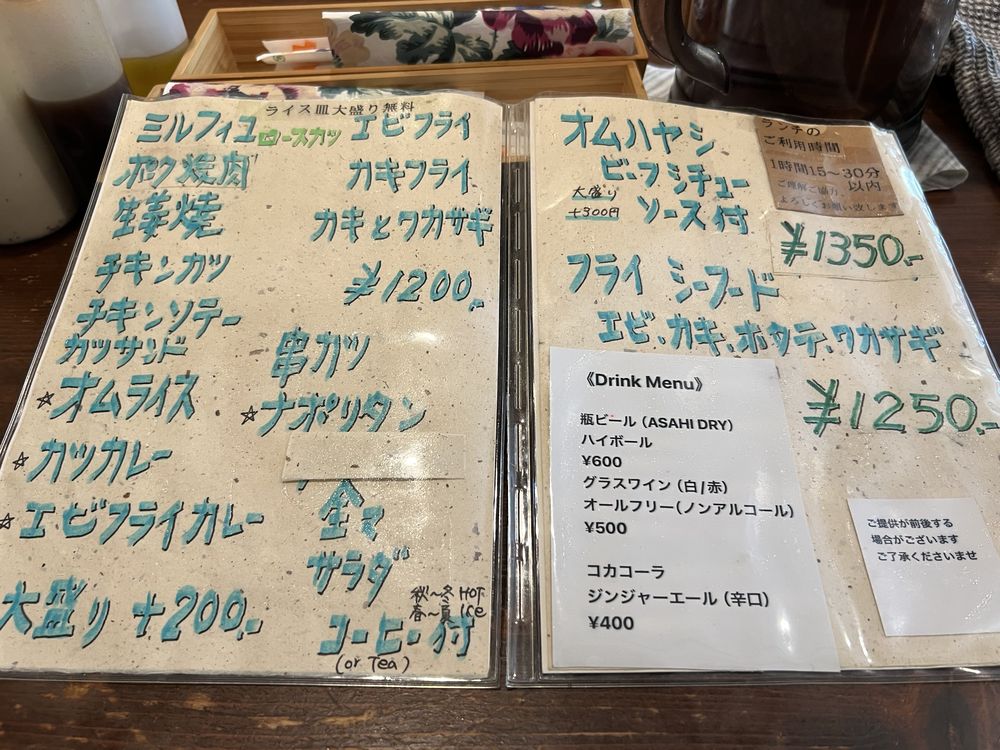 ライス皿大盛り無料
ミルフィユロースカツ
ポク焼肉
生姜焼
チキンカツ
チキンソテー
カツサンド
☆オムライス
☆カツカレー
☆エビフライカレー
大盛り +200.-
エビフライ
カキフライ
カキとワカサギ
¥1200.-
串カツ
☆ナポリタン
全て
サラダ
秋〜冬 HOT
春〜夏 Ice
コーヒー付
(or Tea)
オムハヤシ
ビーフシチュー
ソース付
大盛り
+300円
ランチの
ご利用時間
1時間15〜30分
以内
ご理解ご協力
よろしくお願い致します
¥1350.-
フライ シーフード
エビ、カキ、ホタテ、ワカサギ
¥1250.-
《Drink Menu》
瓶ビール (ASAHI DRY)
ハイボール
¥600
グラスワイン (白/赤)
オールフリー(ノンアルコール)
¥500
コカコーラ
ジンジャーエール (辛口)
¥400
ご提供が前後する
場合がございます
ご了承くださいませ